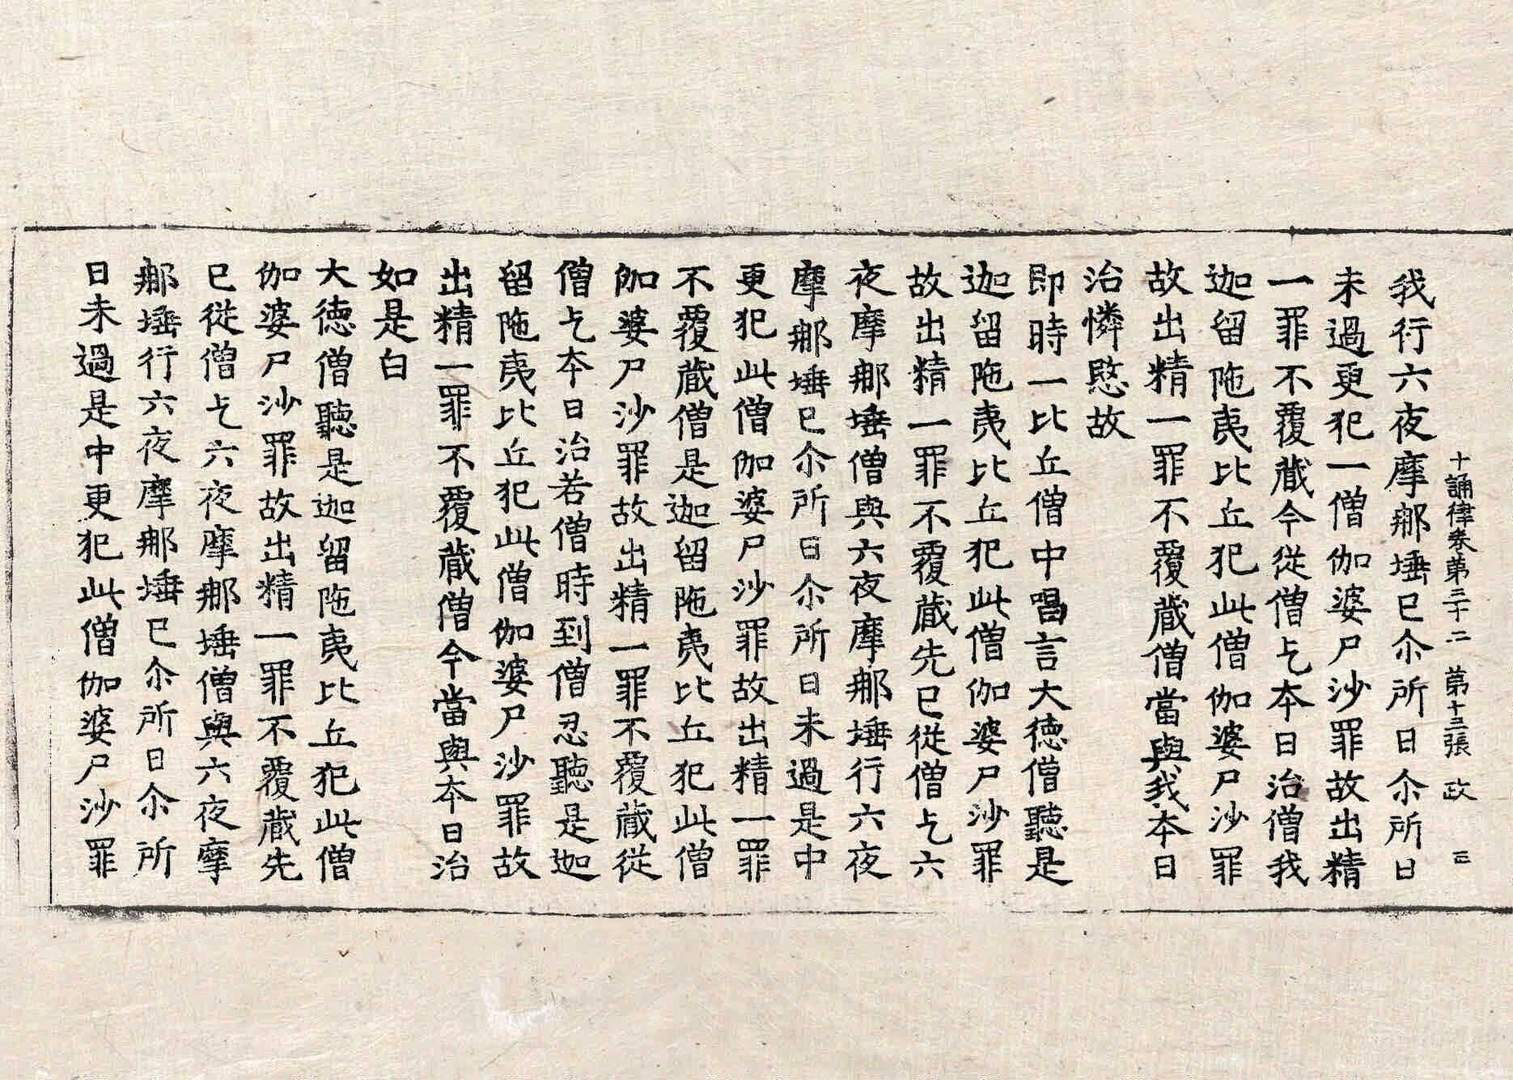 十誦律卷第三十二　第十三張　政　三
我行六夜摩那埵已尒所日尒所日
未過更犯一僧伽婆尸沙罪故出精
一罪不覆藏今從僧乞夲日治僧我
迦留陁夷比丘犯此僧伽婆尸沙罪
故出精一罪不覆藏僧當與我夲日
治憐愍故
即時一比丘僧中唱言大德僧聽是
迦留陁夷比丘犯此僧伽婆尸沙罪
故出精一罪不覆藏先已從僧乞六
夜摩那埵僧與六夜摩那埵行六夜
摩那埵已尒所日尒所日未過是中
更犯此僧伽婆尸沙罪故出精一罪
不覆藏僧是迦留陁夷比丘犯此僧
伽婆尸沙罪故出精一罪不覆藏從
僧乞夲日治若僧時到僧忍聽是迦
留陁夷比丘犯此僧伽婆尸沙罪故
出精一罪不覆藏僧今當與夲日治
如是白
大德僧聽是迦留陁夷比丘犯此僧
伽婆尸沙罪故出精一罪不覆藏先
已從僧乞六夜摩那埵僧與六夜摩
那埵行六夜摩那埵已尒所日尒所
日未過是中更犯此僧伽婆尸沙罪